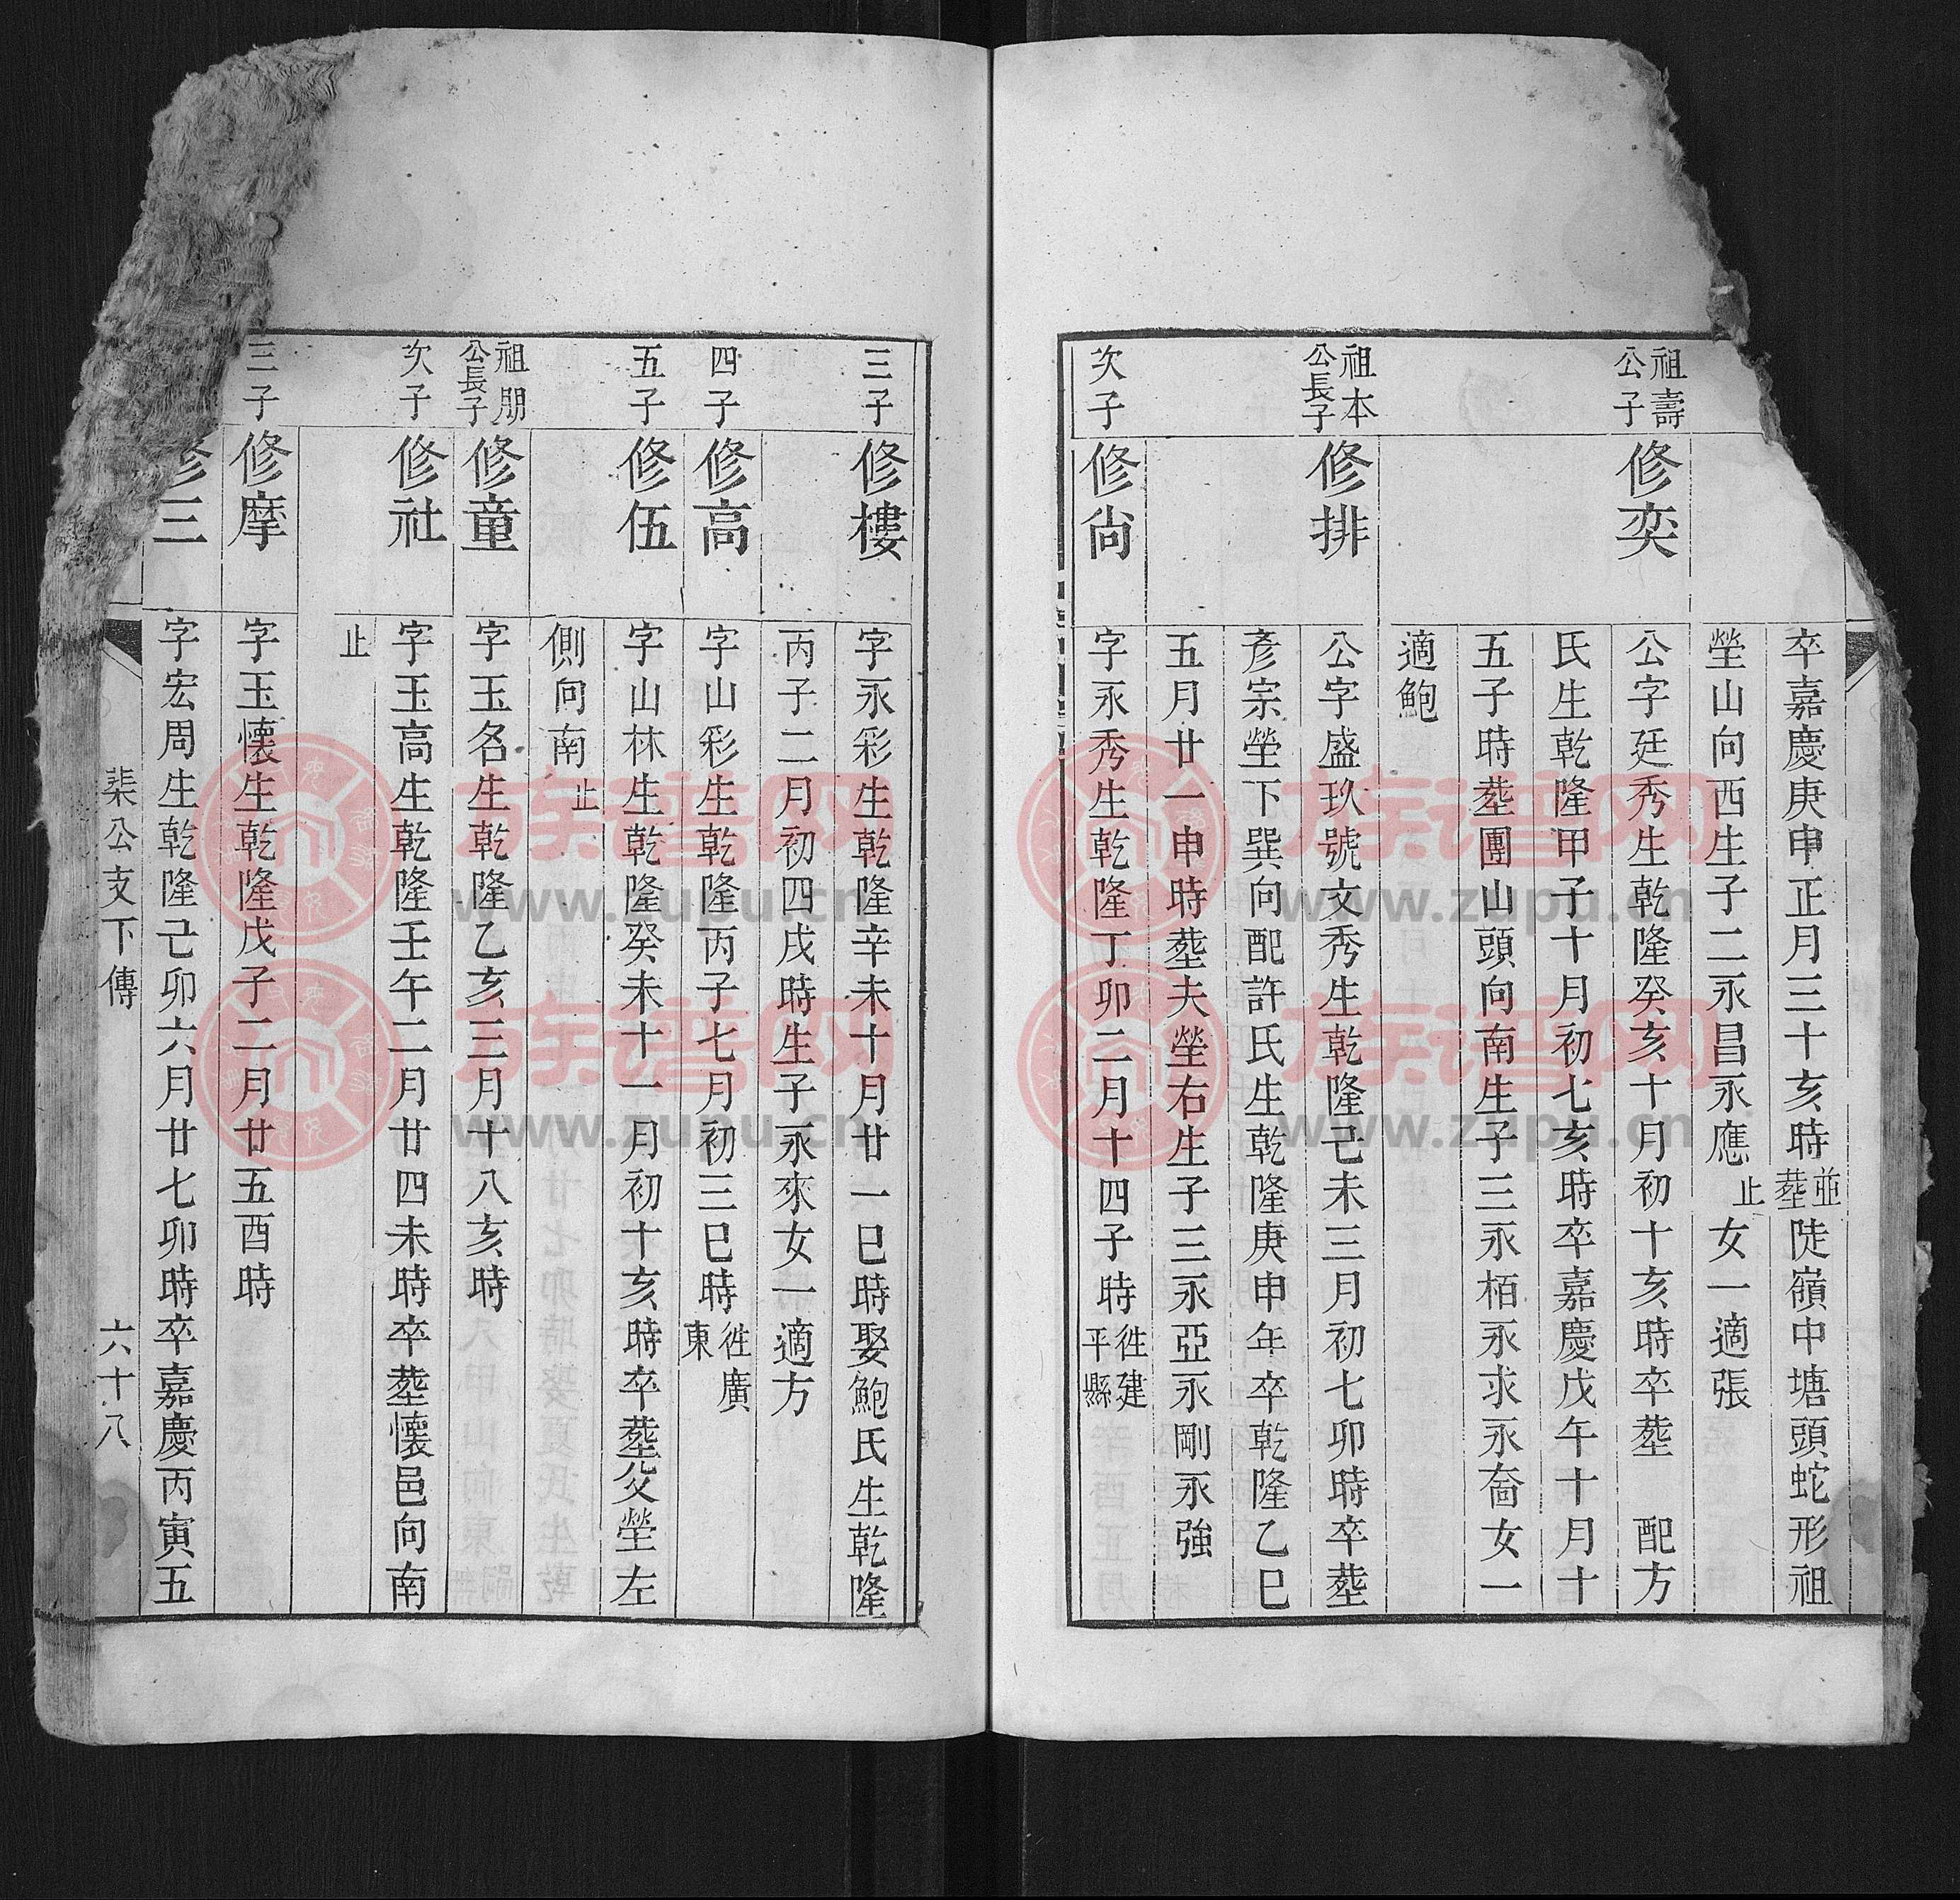 卒嘉慶庚申正月三十亥時並塟陡嶺中塘頭蛇形祖
塋山向西生子二永昌永應止女一適張
祖壽公子
修奕
公字廷秀生乾隆癸亥十月初十亥時卒塟　配方
氏生乾隆甲子十月初七亥時卒嘉慶戊午十月十
五子時塟團山頭向南生子三永栢永求永㐮女一
適鮑
祖本公長子
修排
公字盛玖號文秀生乾隆己未三月初七卯時卒塟
彥宗塋下巽向配許氏生乾隆庚申年卒乾隆乙巳
五月廿一申時塟夫塋右生子三永亞永剛永強
次子
修尙
字永秀生乾隆丁卯二月十四子時徃建平縣
三子
修樓
字永彩生乾隆辛未十月廿一巳時娶鮑氏生乾隆
丙子二月初四戌時生子永來女一適方
四子
修高
字山彩生乾隆丙子七月初三巳時徃廣東
五子
修伍
字山林生乾隆癸未十一月初十亥時卒塟父塋左
側向南止
祖朋公長子
修童
字玉名生乾隆乙亥三月十八亥時
次子
修社
字玉高生乾隆壬午二月廿四未時卒塟懷邑向南
止
三子
修摩
字玉懷生乾隆戊子二月廿五酉時
修三
字宏周生乾隆己卯六月廿七卯時卒嘉慶丙寅五
柒公支下傳
六十八
族谱网
www.zupu.cn
族谱网
www.zupu.cn
族谱网
www.zupu.cn
族谱网
www.zupu.cn